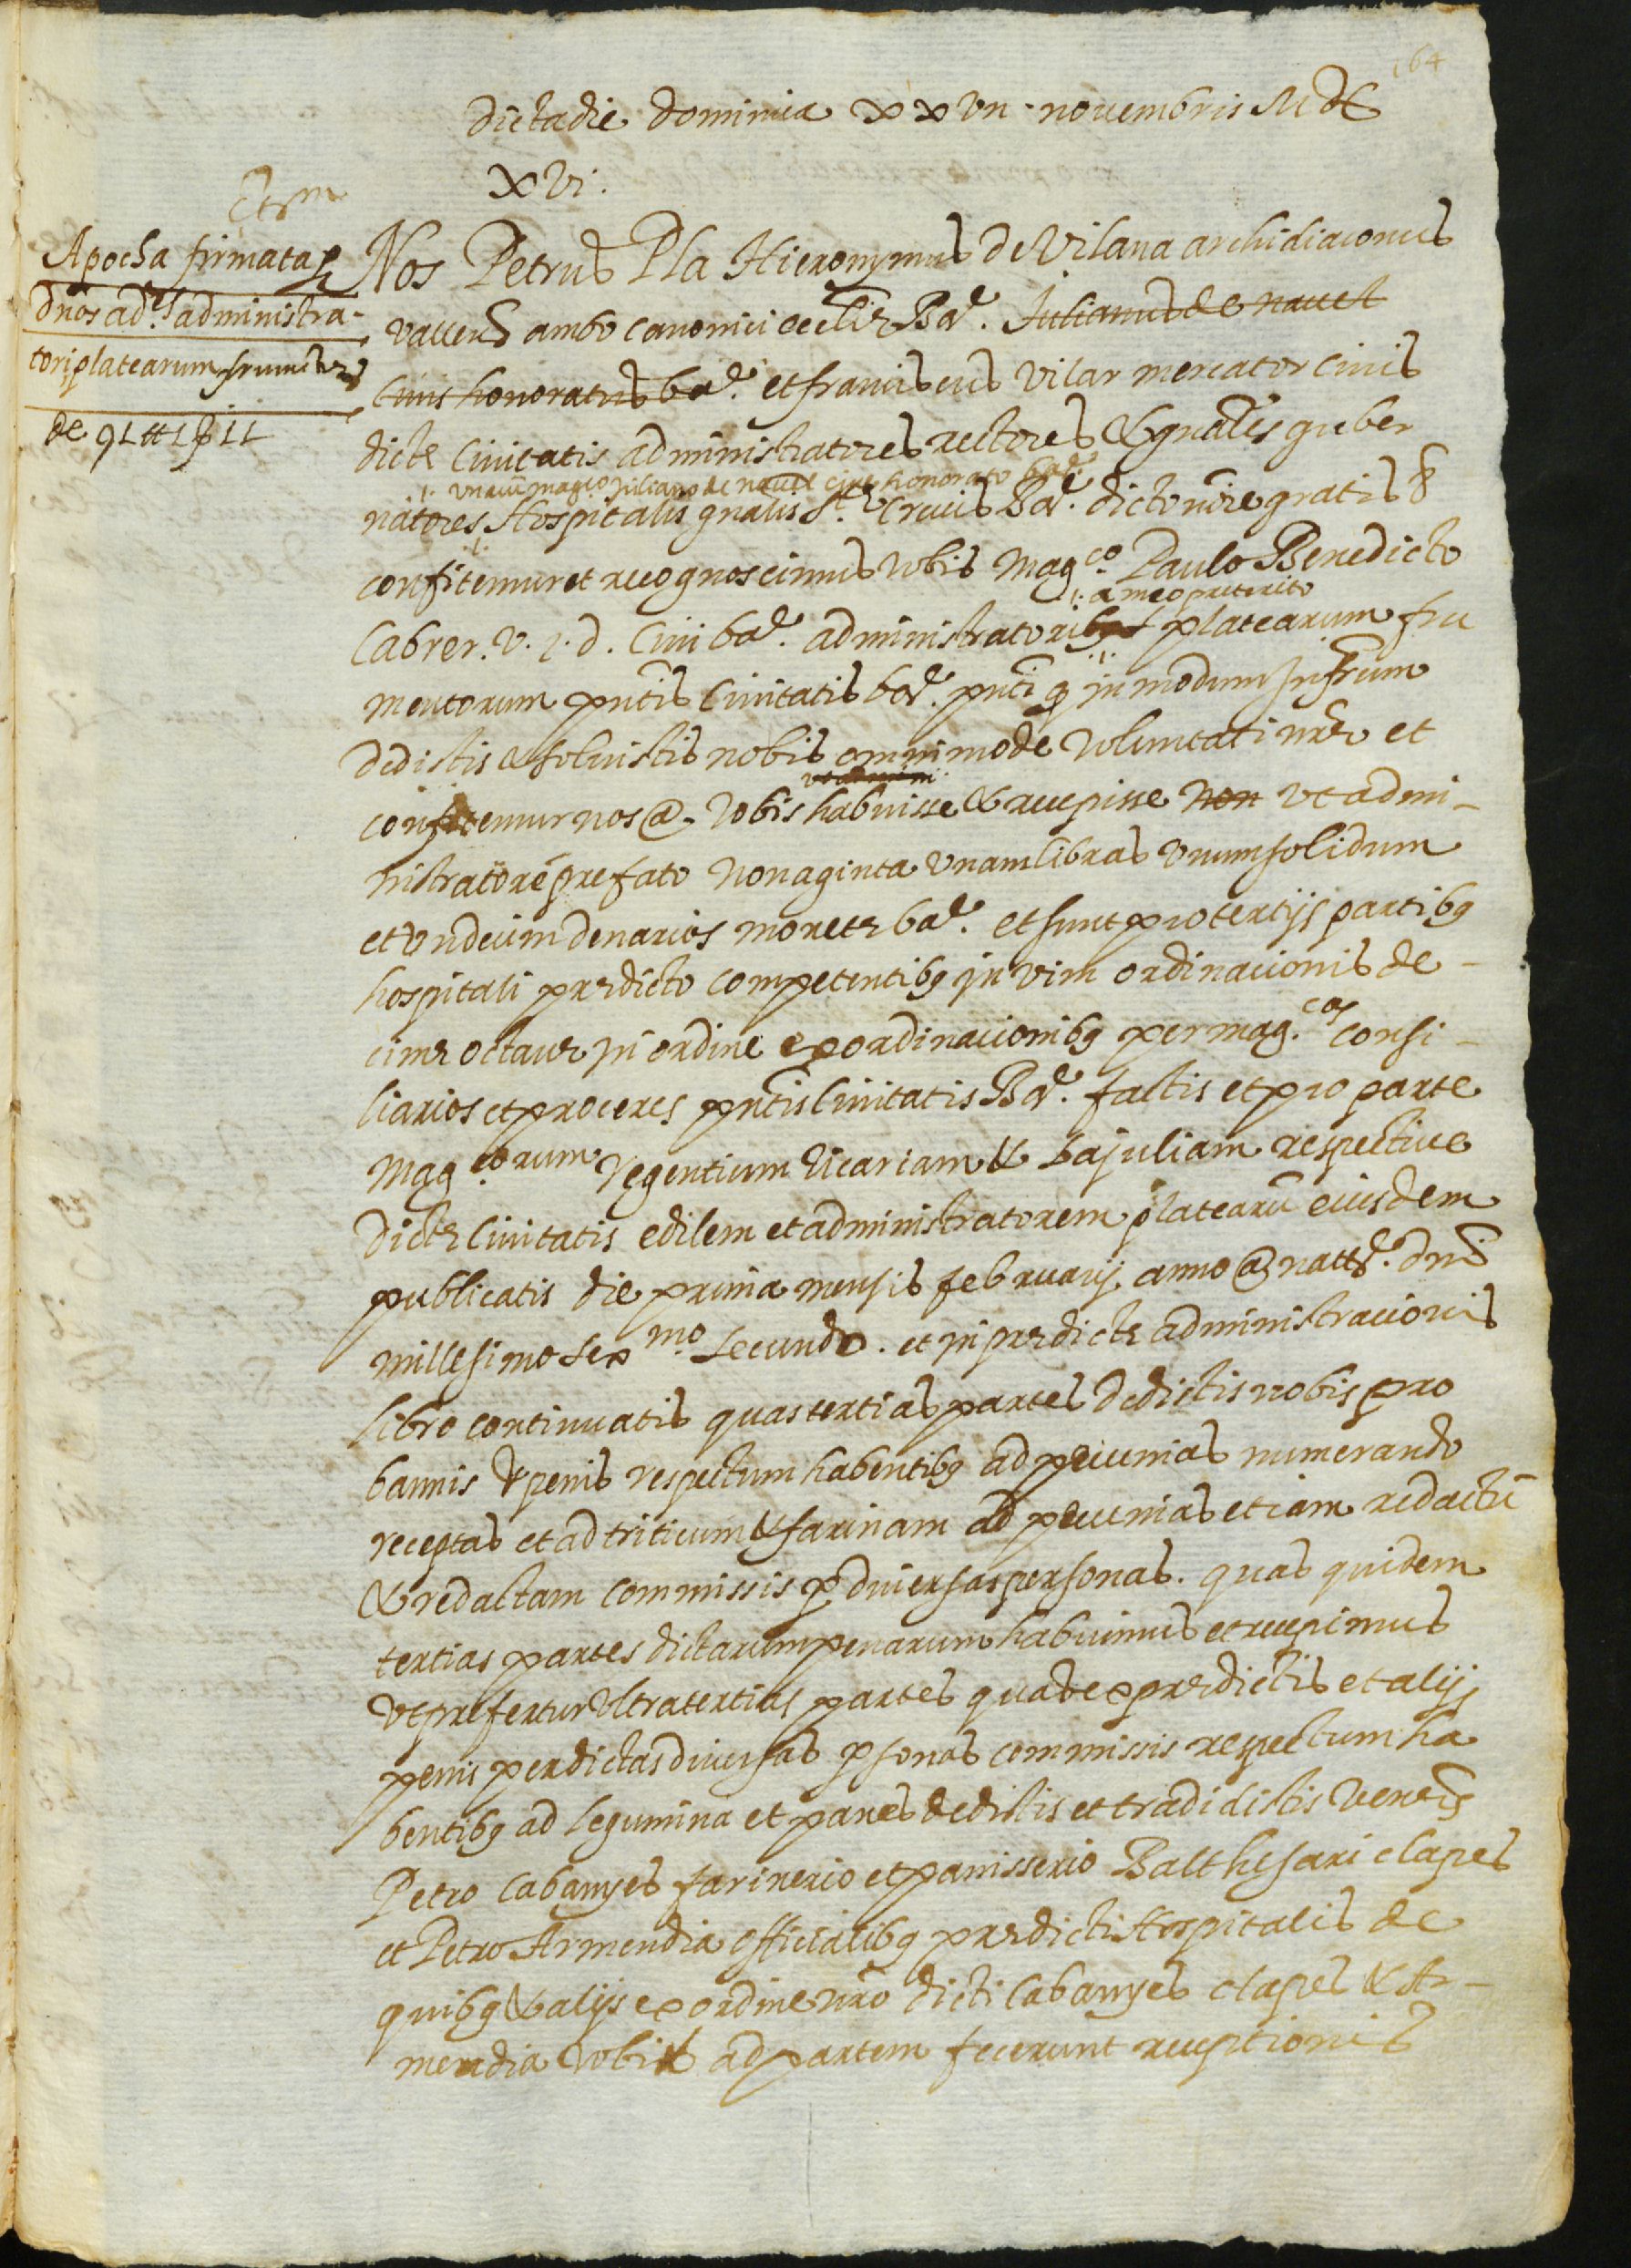 164
Dicta die dominica xxvii novembris MDC
xvi.
Apocha firmata per
dnos ad.res administra-
tori platearum frumenti
de 91 ₶ 1 ß 11
Nos Petrus Pla Hieronymus de Vilana archidiaconus
vallens ambo canonici ecclie Bar. Julianus de navel
civis honoratus bar. et franciscus Vilar mercator civis
dicte civitatis administratores rectores & gnales guber
una cum magco Juliano de navel cive honorato bar.
natores Hospitalis gnalis Ste Crucis Bar. dicto noie gratis &
confitemur et recognoscimus vobis Magco. Paulo Benedicto
anno preterito
Cabrer. v. j. d. civi bar. administratori platearum fru
mentorum pntis civitatis bar. pnti q in modum infrum
dedistis & solvistis nobis omnimode voluntati nre et
confitemur nos @ vobis habuisse & recepisse non ut admi-
nistratore prefato nonaginta unam libras unum solidum
et undecim denarios monete bar. et sunt pro tertijs partibq
hospitali predicto competentibq in vim ordinacionis de-
cime octave in ordine ex ordinacionibq per mag.cos consi-
liarios et proceres pntis civitatis Bar. factis et pro parte
Magcorum Regentium Vicariam & bajuliam respective
dicte civitatis edilem et administratorem platearu eiusdem
publicatis die prima mensis februarij anno @ natte. dni
millesimo sexmo secundo. et in predicte administracionis
libro continuatis quas tertias partes dedistis nobis pro
bannis & penis respectum habentibq ad pecunias numerando
receptas et ad triticum & farinam ad pecunias etiam redactu
& redactam commissis p diversas personas. quas quidem
tertias partes dictarum penarum habuimus et recepimus
ut prefertur ultra tertias partes quas ex predictis et alijs
penis per dictas diversas psonas commissis respectum ha
bentibq ad legumina et panes dedistis et tradidistis Venbs
Petro Cabanyes farinerio et panisserio Balthesari clapes
et Petro Armendia officialibq predicti Hospitalis de
quibq & alijs ex ordine nro dicti Cabanyes clapes & Ar-
mendia vobis ad partem fecerunt receptionis